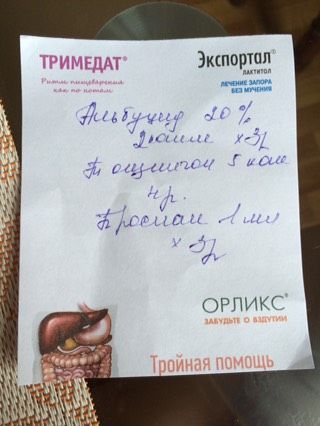 ТРИМЕДАТ®
Ритм пищеварения
как по нотам
Экспортал®
ЛАКТИТОЛ
ЛЕЧЕНИЕ ЗАПОРА
БЕЗ МУЧЕНИЯ
Альбуцид 20%
2 капли х 3р
5 кап
4р.
1 мл
х 3р
ОРЛИКС®
ЗАБУДЬТЕ О ВЗДУТИИ
Тройная помощь